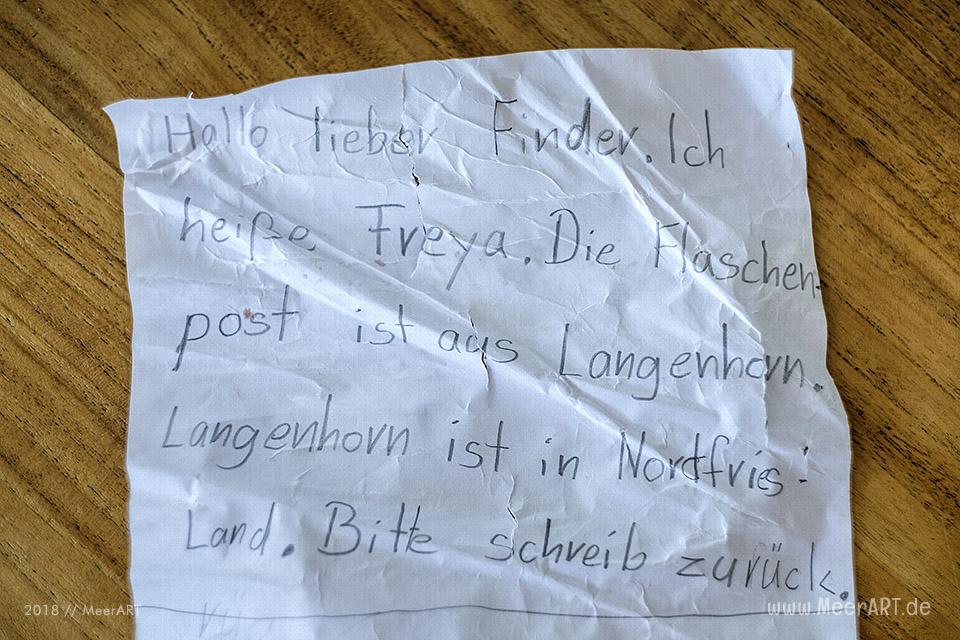 Hallo lieber Finder. Ich
heiße Freya. Die Flaschen-
post ist aus Langenhorn.
Langenhorn ist in Nordfries-
Land. Bitte schreib zurück.
2018 // MeerART
www.MeerART.de